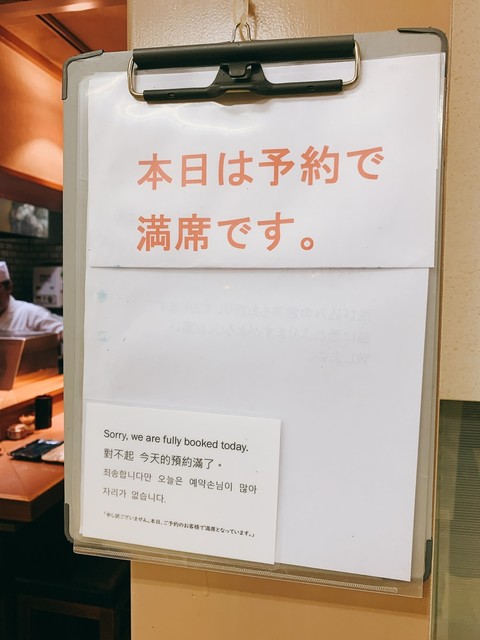 本日は予約で
満席です。
Sorry, we are fully booked today.
對不起 今天的預約滿了。
죄송합니다만 오늘은 예약손님이 많아
자리가 없습니다.
「申し訳ございません。本日、ご予約のお客様で満席となっています。」